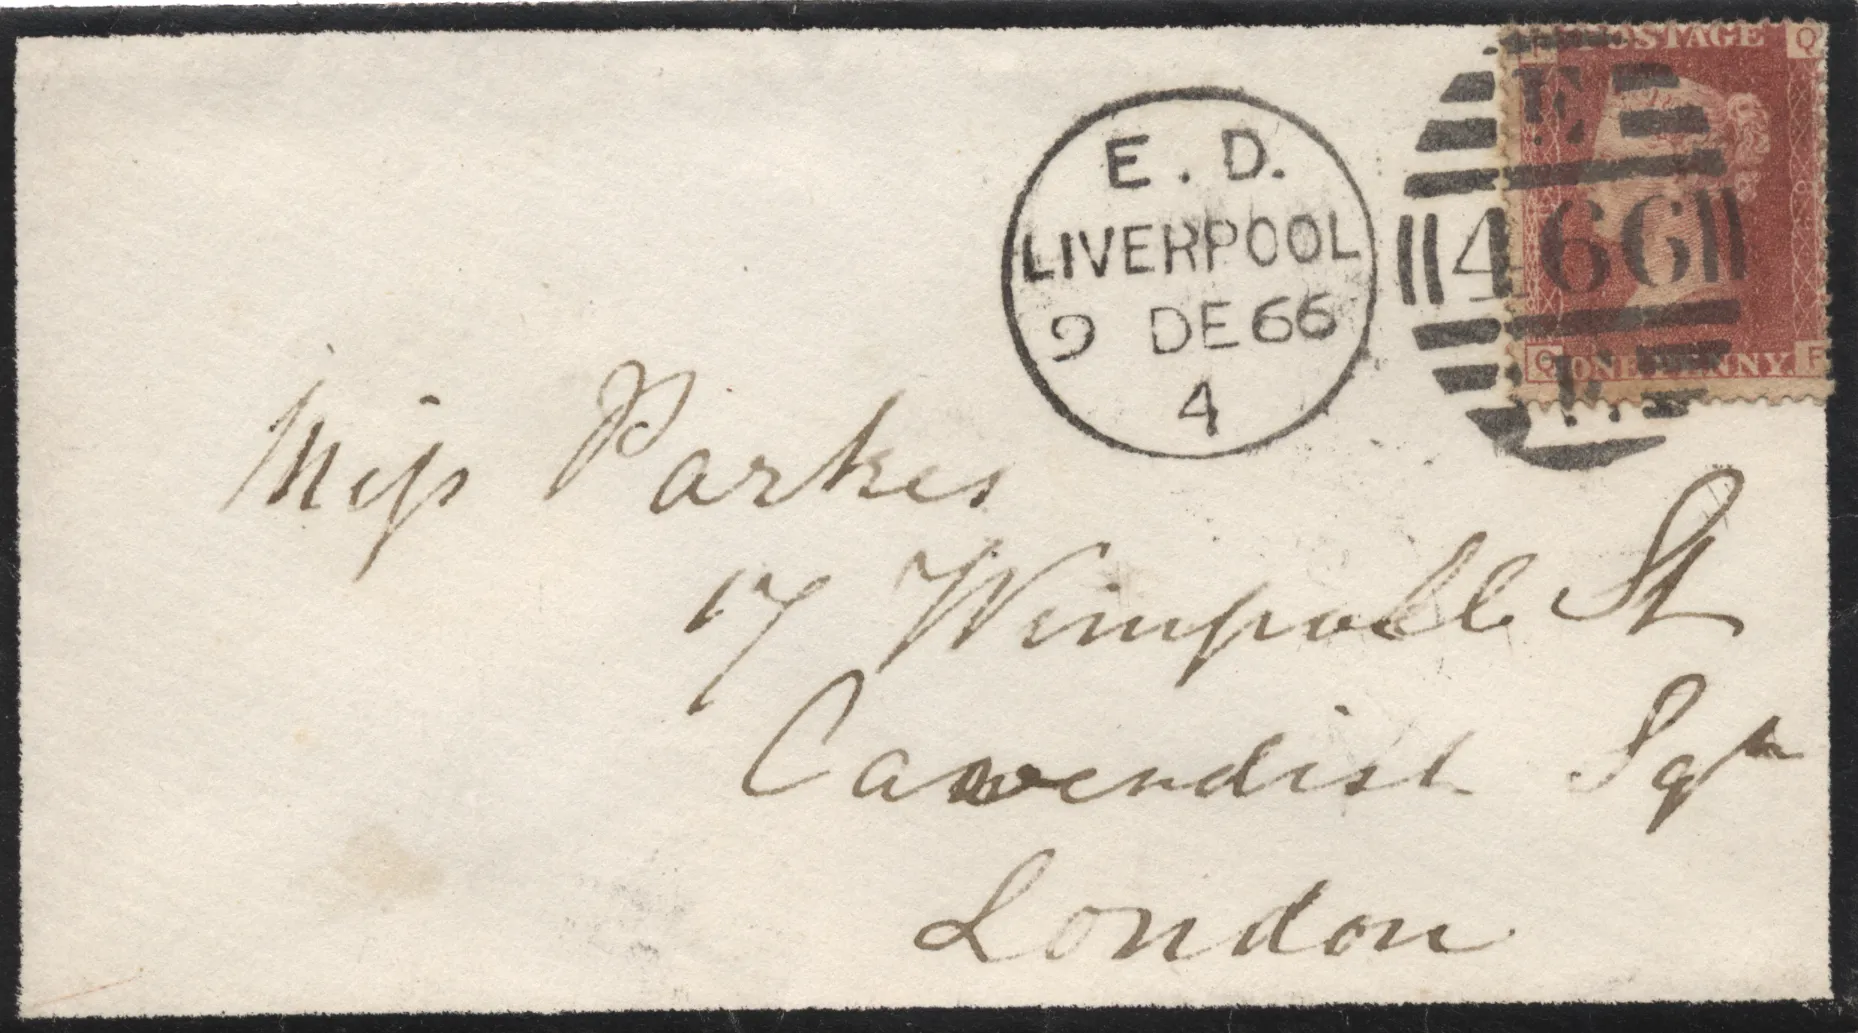 POSTAGE
Q
E
466
Q ONE PENNY F
E. D.
LIVERPOOL
9 DE 66
4
Miss Parkes
17 Wimpole St
Cavendish Sqr
London